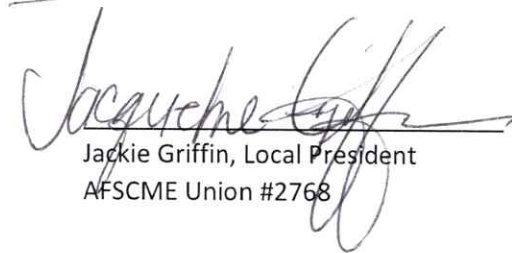 Jacqueline Griffin
Jackie Griffin, Local President
AFSCME Union #2768